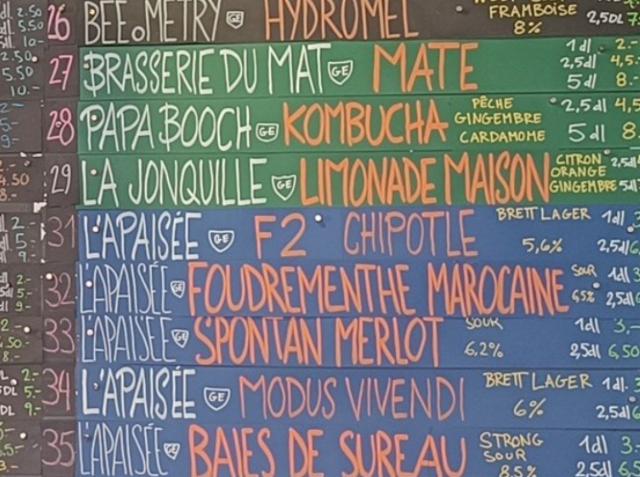 26 BEE.O.METRY GE HYDROMEL FRAMBOISE 8% 2,5DL
27 BRASSERIE DU MAT GE MATE 1dl 2.- 2,5dl 4,5 5dl 8.-
28 PAPA BOOCH GE KOMBUCHA PÊCHE GINGEMBRE CARDAMOME 2,5dl 4,5 5dl 8
29 LA JONQUILLE GE LIMONADE MAISON CITRON ORANGE GINGEMBRE 2,5dl 5dl
31 L'APAISÉE GE F2 CHIPOTLE BRETT LAGER 5,6% 1dl 2,5dl
32 L'APAISÉE GE FOUDREMENTHE MAROCAINE SOUR 6,5% 1dl 3 2,5dl
33 L'APAISÉE GE SPONTAN MERLOT SOUR 6,2% 1dl 3,- 2,5dl 6,50
34 L'APAISÉE GE MODUS VIVENDI BRETT LAGER 6% 1dl 2,5dl
35 L'APAISÉE GE BAIES DE SUREAU STRONG SOUR 8,5% 1dl 3.- 2,5dl 6,5